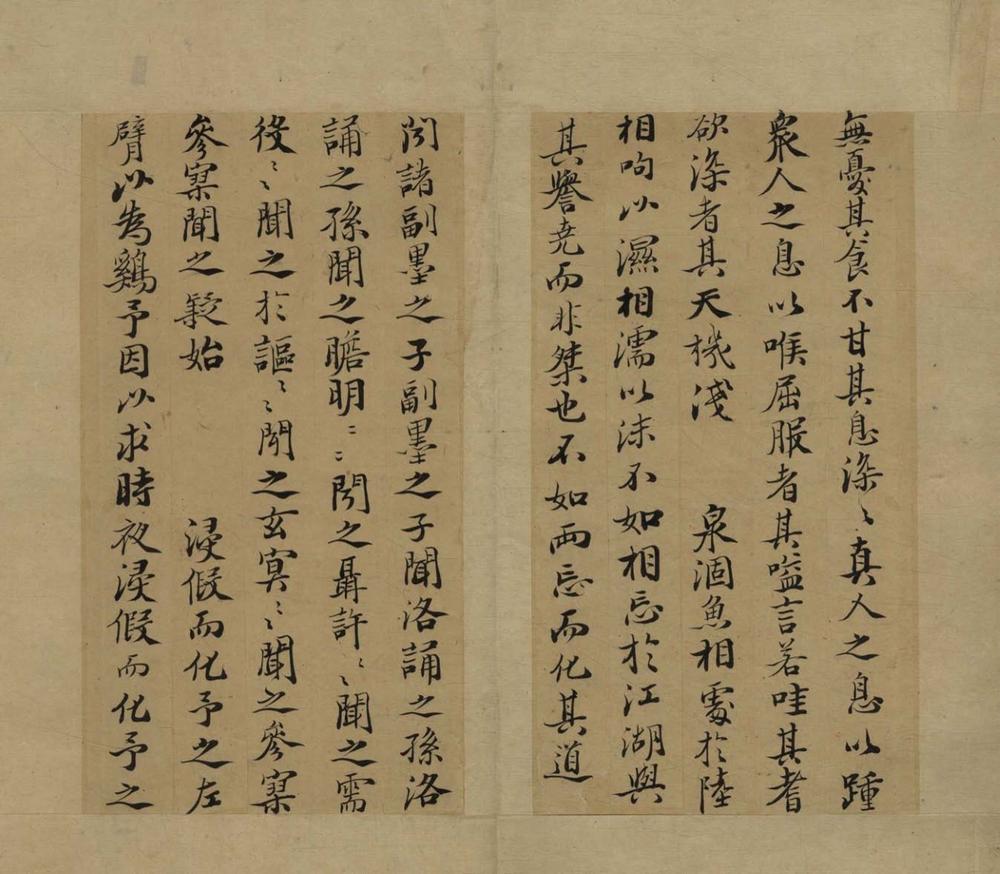 無憂其食不甘其息深〻真人之息以踵
衆人之息以喉屈服者其嗌言若哇其耆
欲深者其天機淺　泉涸魚相處於陸
相呴以濕相濡以沫不如相忘於江湖與
其譽堯而非桀也不如兩忘而化其道
聞諸副墨之子副墨之子聞洛誦之孫洛
誦之孫聞之瞻明〻〻聞之聶許〻〻聞之需
役〻〻聞之於謳〻〻聞之玄冥〻〻聞之參寥
參寥聞之疑始　浸假而化予之左
臂以為鷄予因以求時夜浸假而化予之